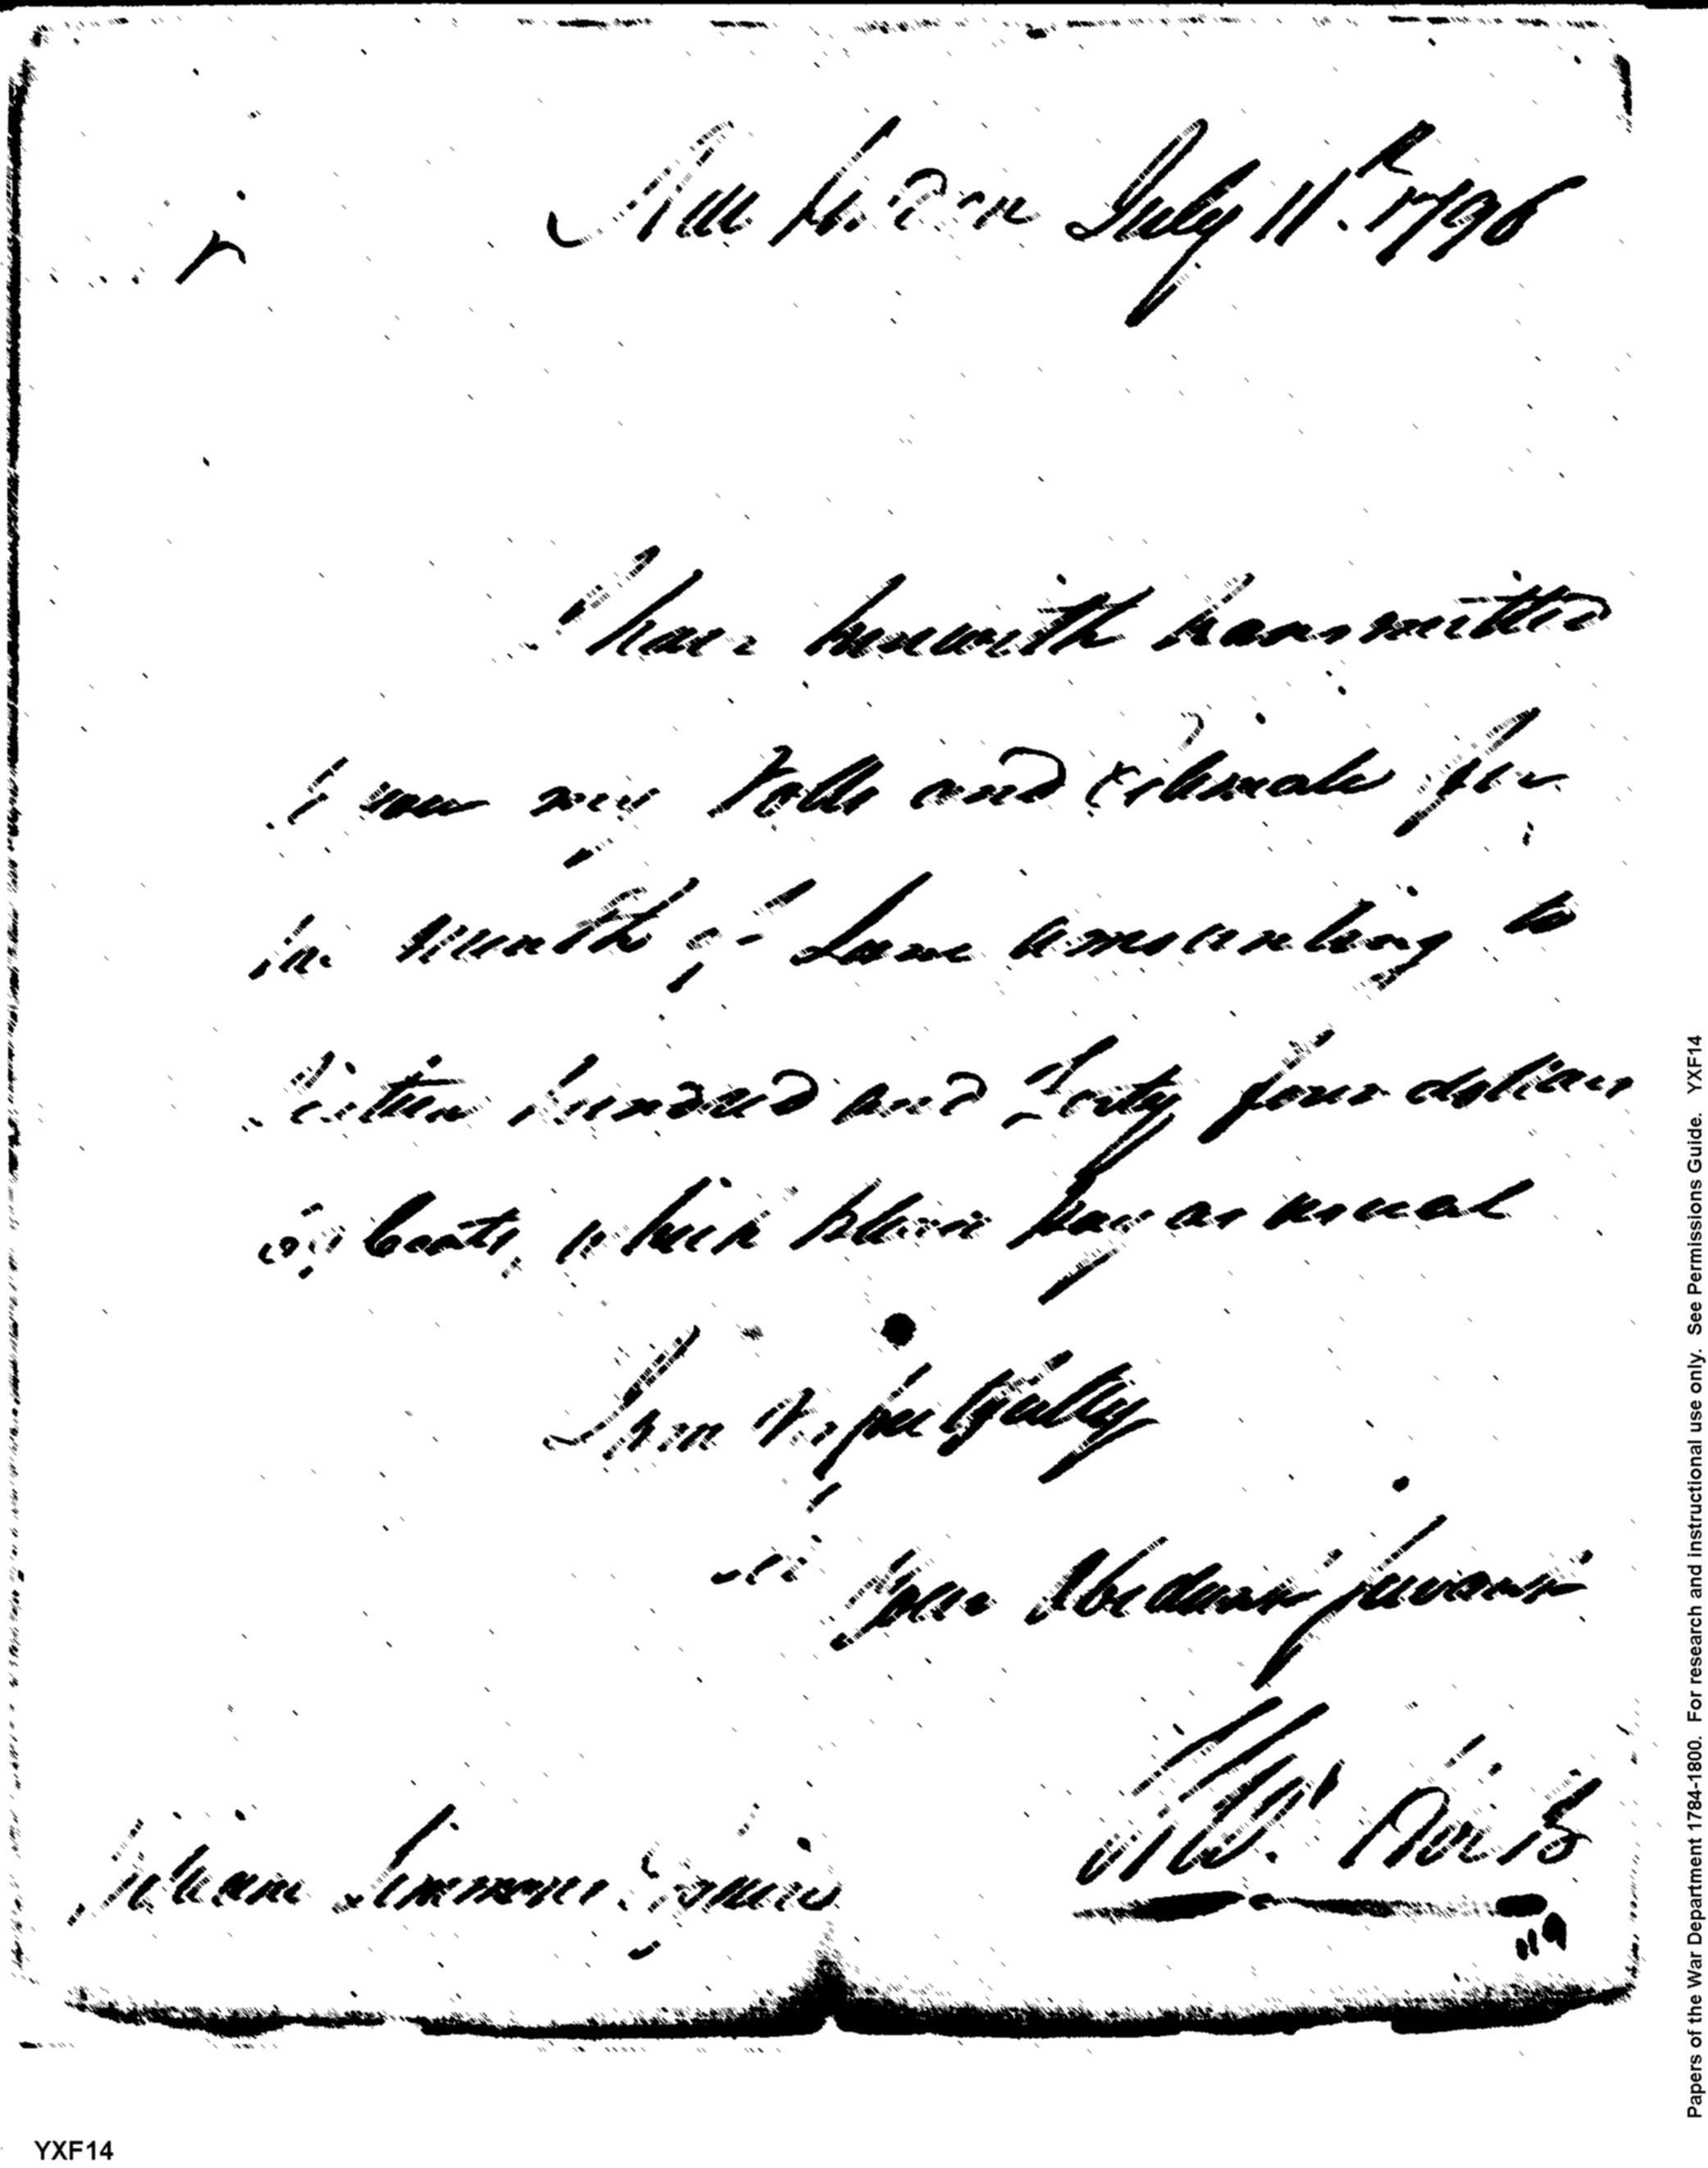 New London July 11th 1796
r
I have herewith transmitted
to you my Rolls and Estimate for
the month of June amounting to
hundred and Forty four dollars
Cents, which please pay as usual
I am respectfully
Sir your Obedient Servant
William Simmons Esquire
119
Papers of the War Department 1784-1800. For research and instructional use only. See Permissions Guide. YXF14
YXF14